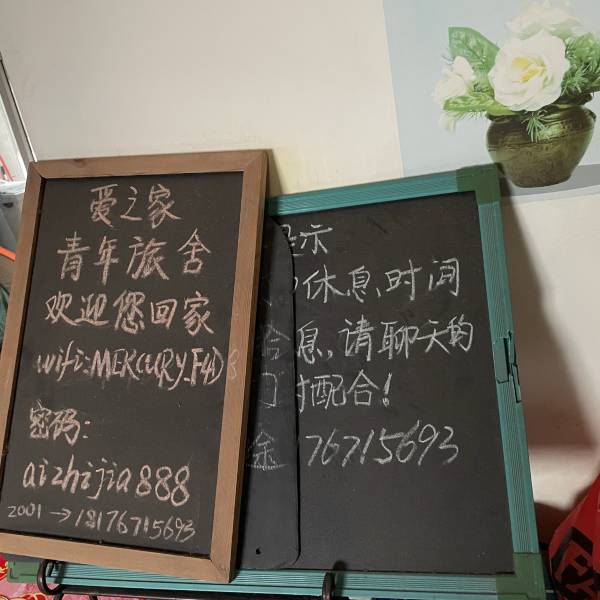 爱之家
青年旅舍
欢迎您回家
wifi:MERCURY_F4D8
密码:
aizhijia888
2001 → 18176715693
示
休息、时间
息,请聊天的
配合!
76715693